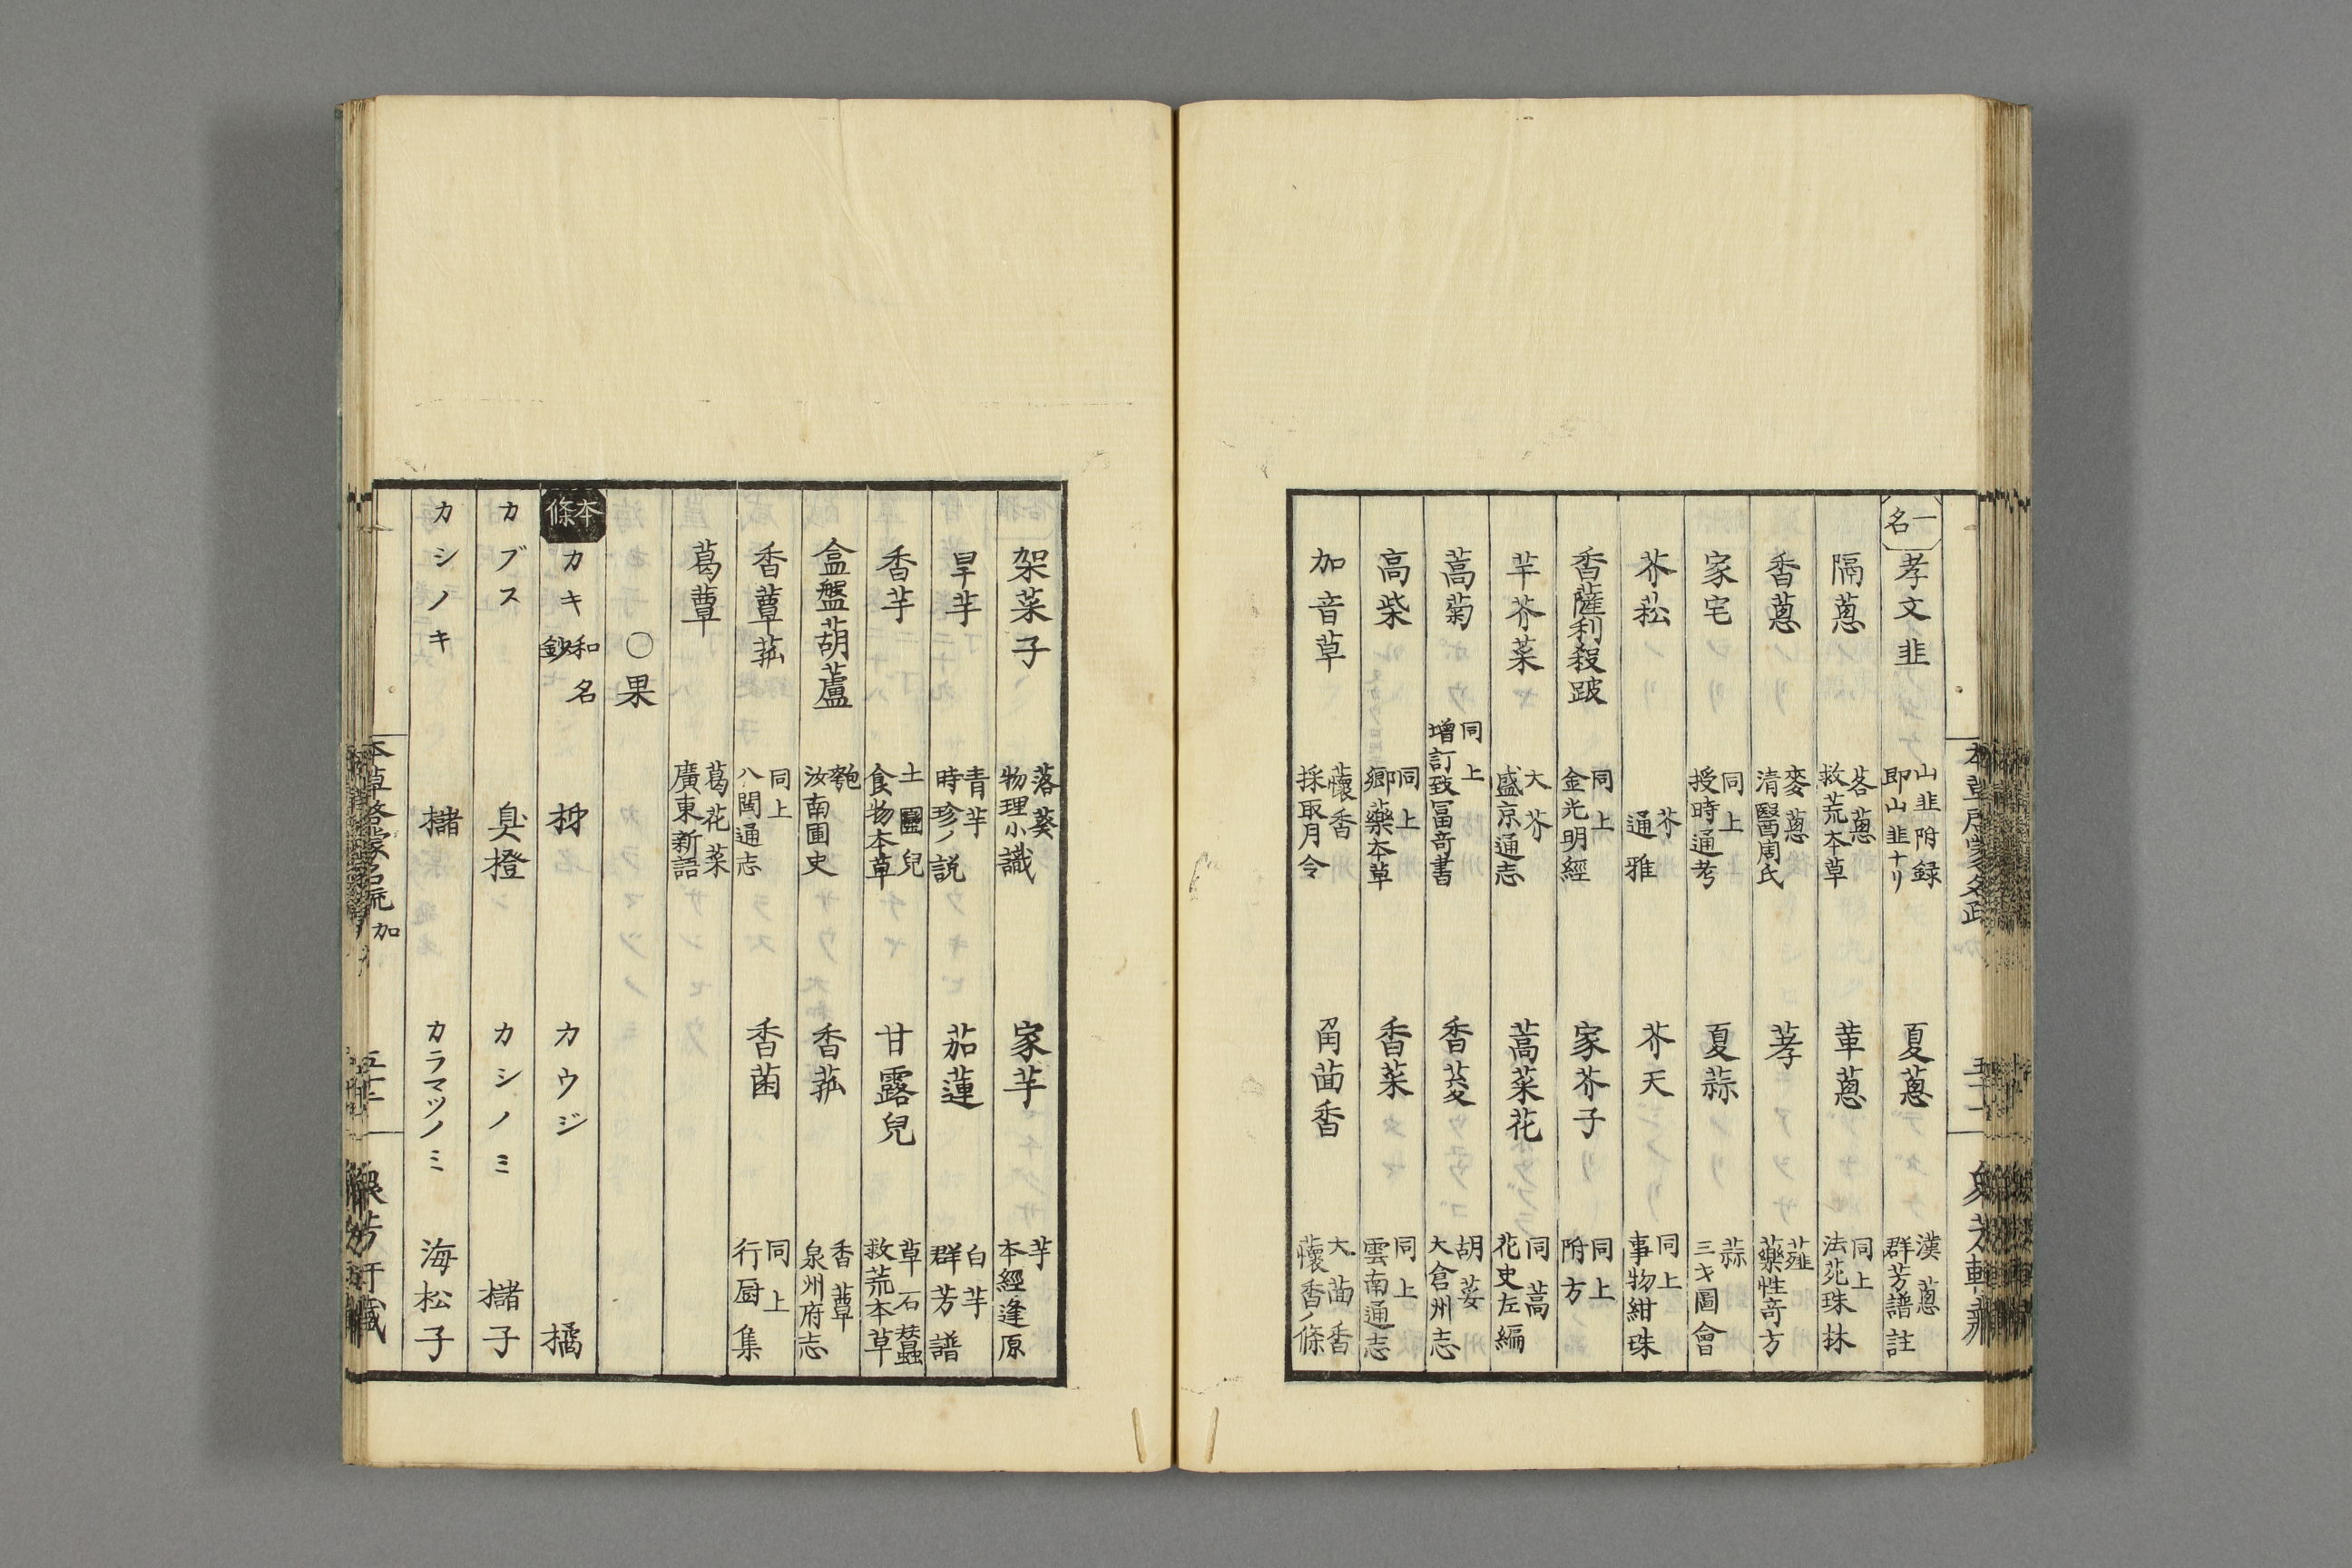 一名
孝文韭 山韭附録 即山韭ナリ 夏葱 漢葱 群芳譜註
隔葱 茖葱 救荒本草 葷葱 同上 法苑珠林
香葱 麥葱 清醫周氏 莩 薤 藥性奇方
家宅 同上 授時通考 夏蒜 蒜 三才圖會
芥菘 芥 通雅 芥天 同上 事物紺珠
香薩利殺跛 同上 金光明經 家芥子 同上 附方
芉芥菜 大芥 盛京通志 蒿菜花 同蒿 花史左編
蒿菊 同上 增訂致冨奇書 香荾 胡荽 大倉州志
高柴 同上 郷藥本草 香菜 同上 雲南通志
加音草 蘹香 採取月令 角茴香 大茴香 蘹香ノ條
架菜子 落葵 物理小識 家芋 芋 本經逢原
旱芋 青芋 時珍ノ説 茄蓮 白芋 群芳譜
香芋 土圞兒 食物本草 甘露兒 草石蠶 救荒本草
盒盤葫蘆 匏 汝南圃史 香菰 香蕈 泉州府志
香蕈菰 同上 八閩通志 香菌 同上 行厨集
葛蕈 葛花菜 廣東新語
〇果
本條
カキ 和名鈔 柹 カウジ 橘
カブス 臭橙 カシノミ 櫧子
カシノキ 櫧 カラマツノミ 海松子
本草啓蒙名疏 加 五十三 衆芳軒藏